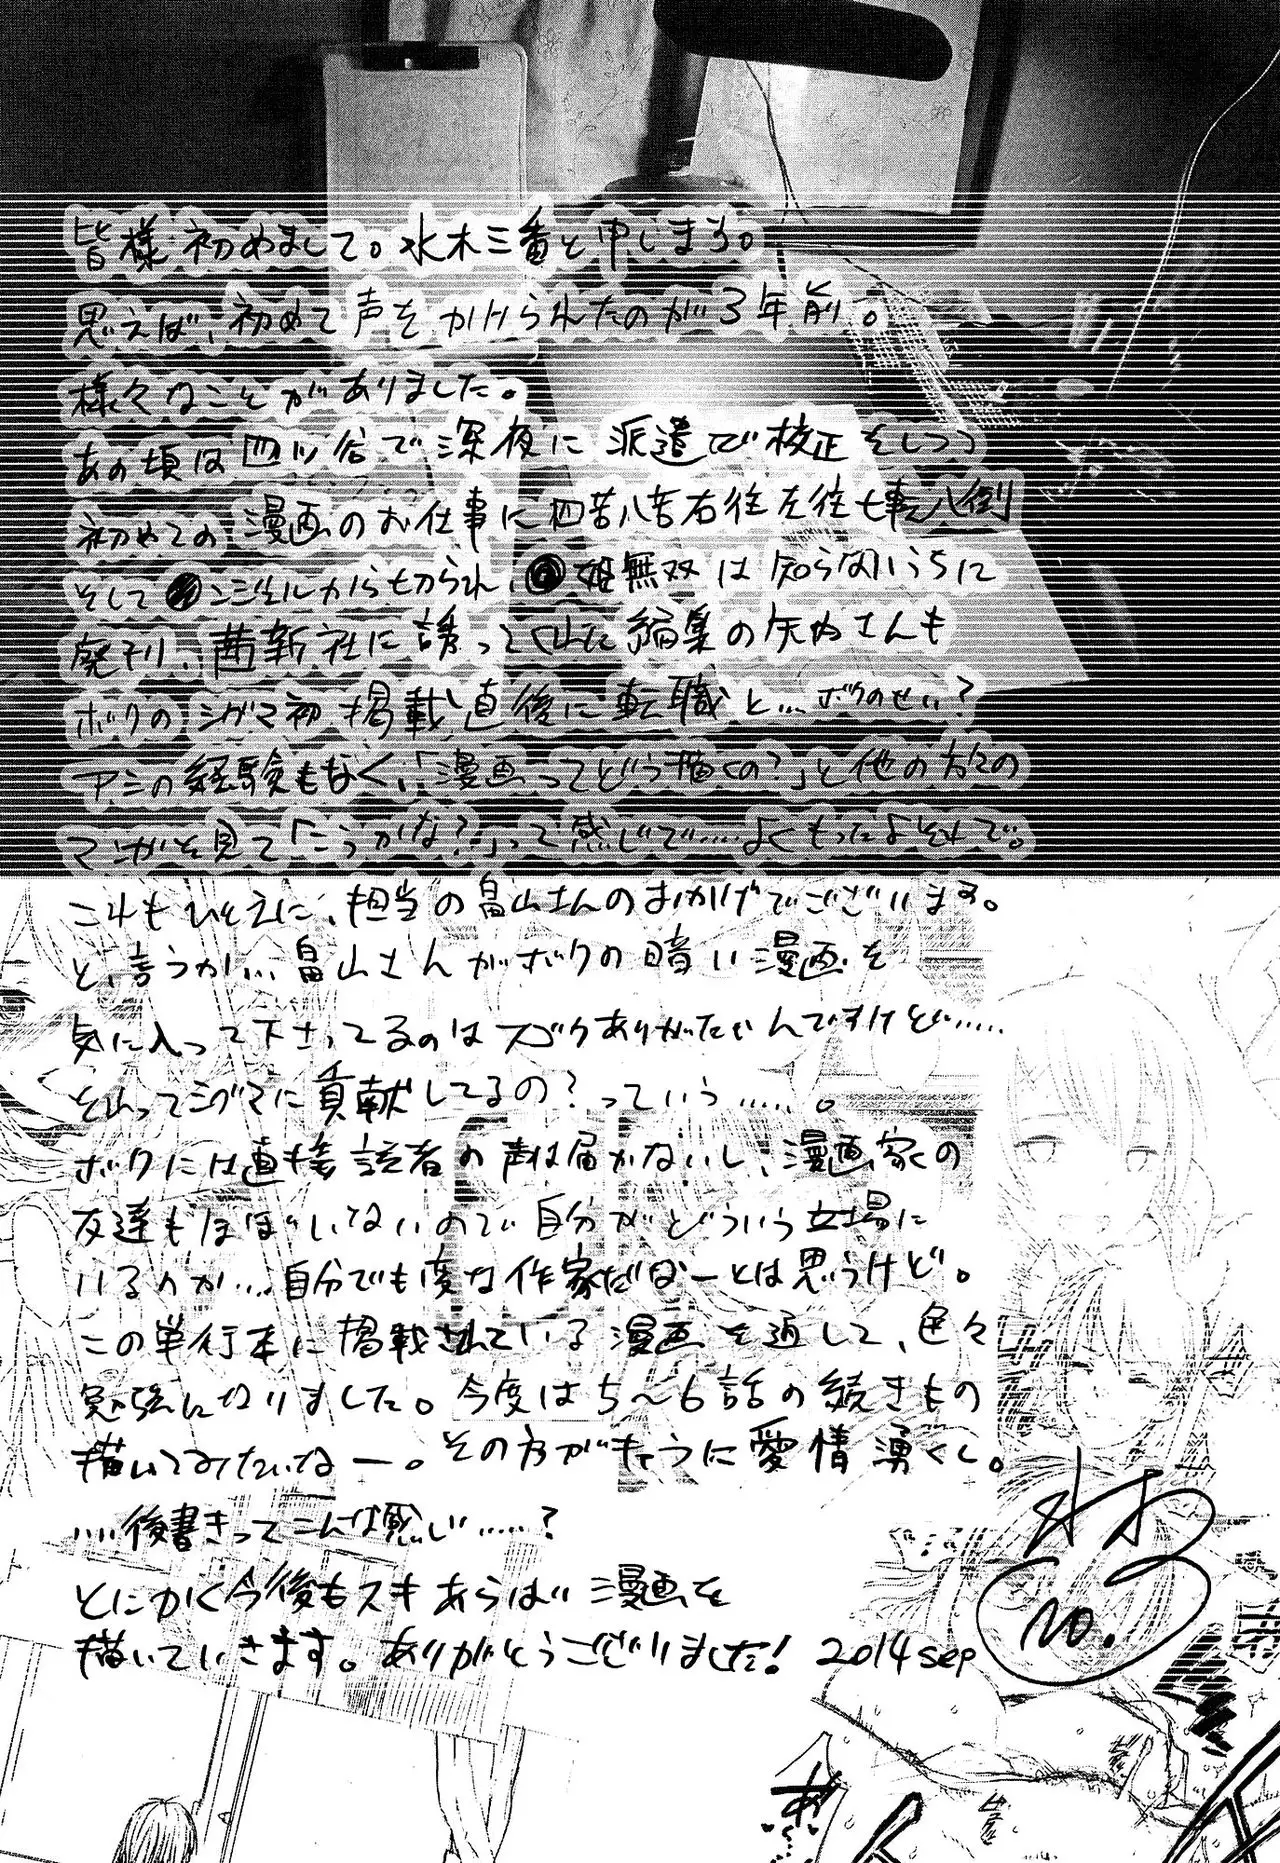 皆様初めまして。水木三番と申します。
思えば、初めて声をかけられたのが3年前。
様々なことがありました。
あの頃は四ツ谷で深夜に派遣で校正をしつつ
初めての漫画のお仕事に四苦八苦右往左往七転八倒
そして●ンジェルから切られ、●姫無双は知らないうちに
廃刊、茜新社に誘ってくれた編集の矢内さんも
ボクのシグマ初掲載直後に転職と…ボクのせい?
アシの経験もなく、「漫画ってどう描くの?」と他の方々の
マンガを見て「こうかな?」って感じで……よくもったよそれで。
これもひとえに、担当の畠山さんのおかげでございます。
と、言うか…畠山さんがボクの暗い漫画を
気に入って下さってるのはスゴクありがたいんですけど……
それってシグマに貢献してるの?っていう……。
ボクには直接読者の声は届かないし、漫画家の
友達もほぼいないので自分がどういう立場に
いるのか…自分でも変な作家だなーとは思うけど。
この単行本に掲載されている漫画を通して、色々
勉強になりました。今度は5〜6話の続きもの
描いてみたいなー。その方がキャラに愛情湧くし。
……後書きってこんな感じ……?
とにかく今後もスキあらば漫画を
描いていきます。ありがとうございました! 2014sep
No.